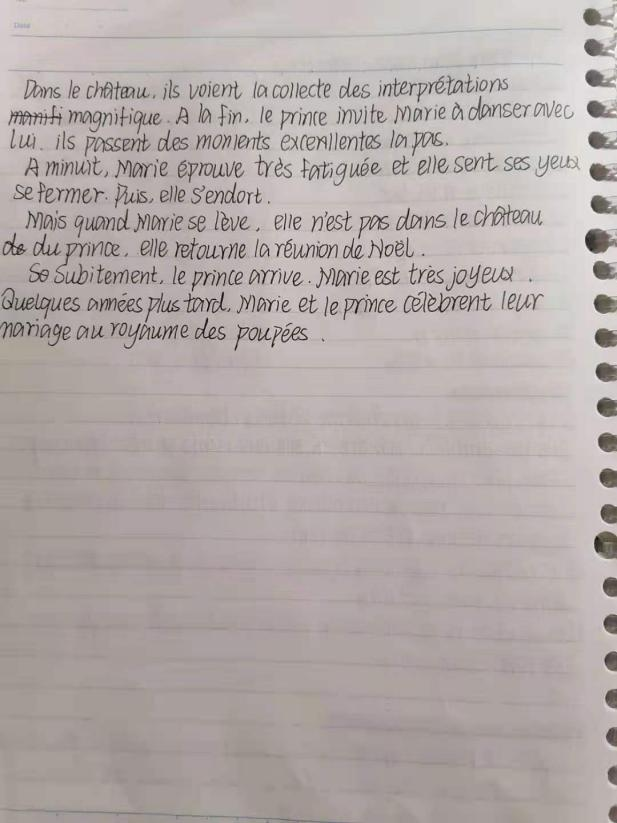 Date
Dans le château, ils voient la collecte des interprétations
manifi magnifique. A la fin, le prince invite Marie à danser avec
lui. ils passent des moments excenllentes la pas.
A minuit, Marie éprouve très fatiguée et elle sent ses yeux
se fermer. Puis, elle s'endort.
Mais quand Marie se lève, elle n'est pas dans le château
de du prince, elle retourne la réunion de Noël.
So Subitement, le prince arrive. Marie est très joyeux.
Quelques années plus tard, Marie et le prince célèbrent leur
mariage au royaume des poupées.